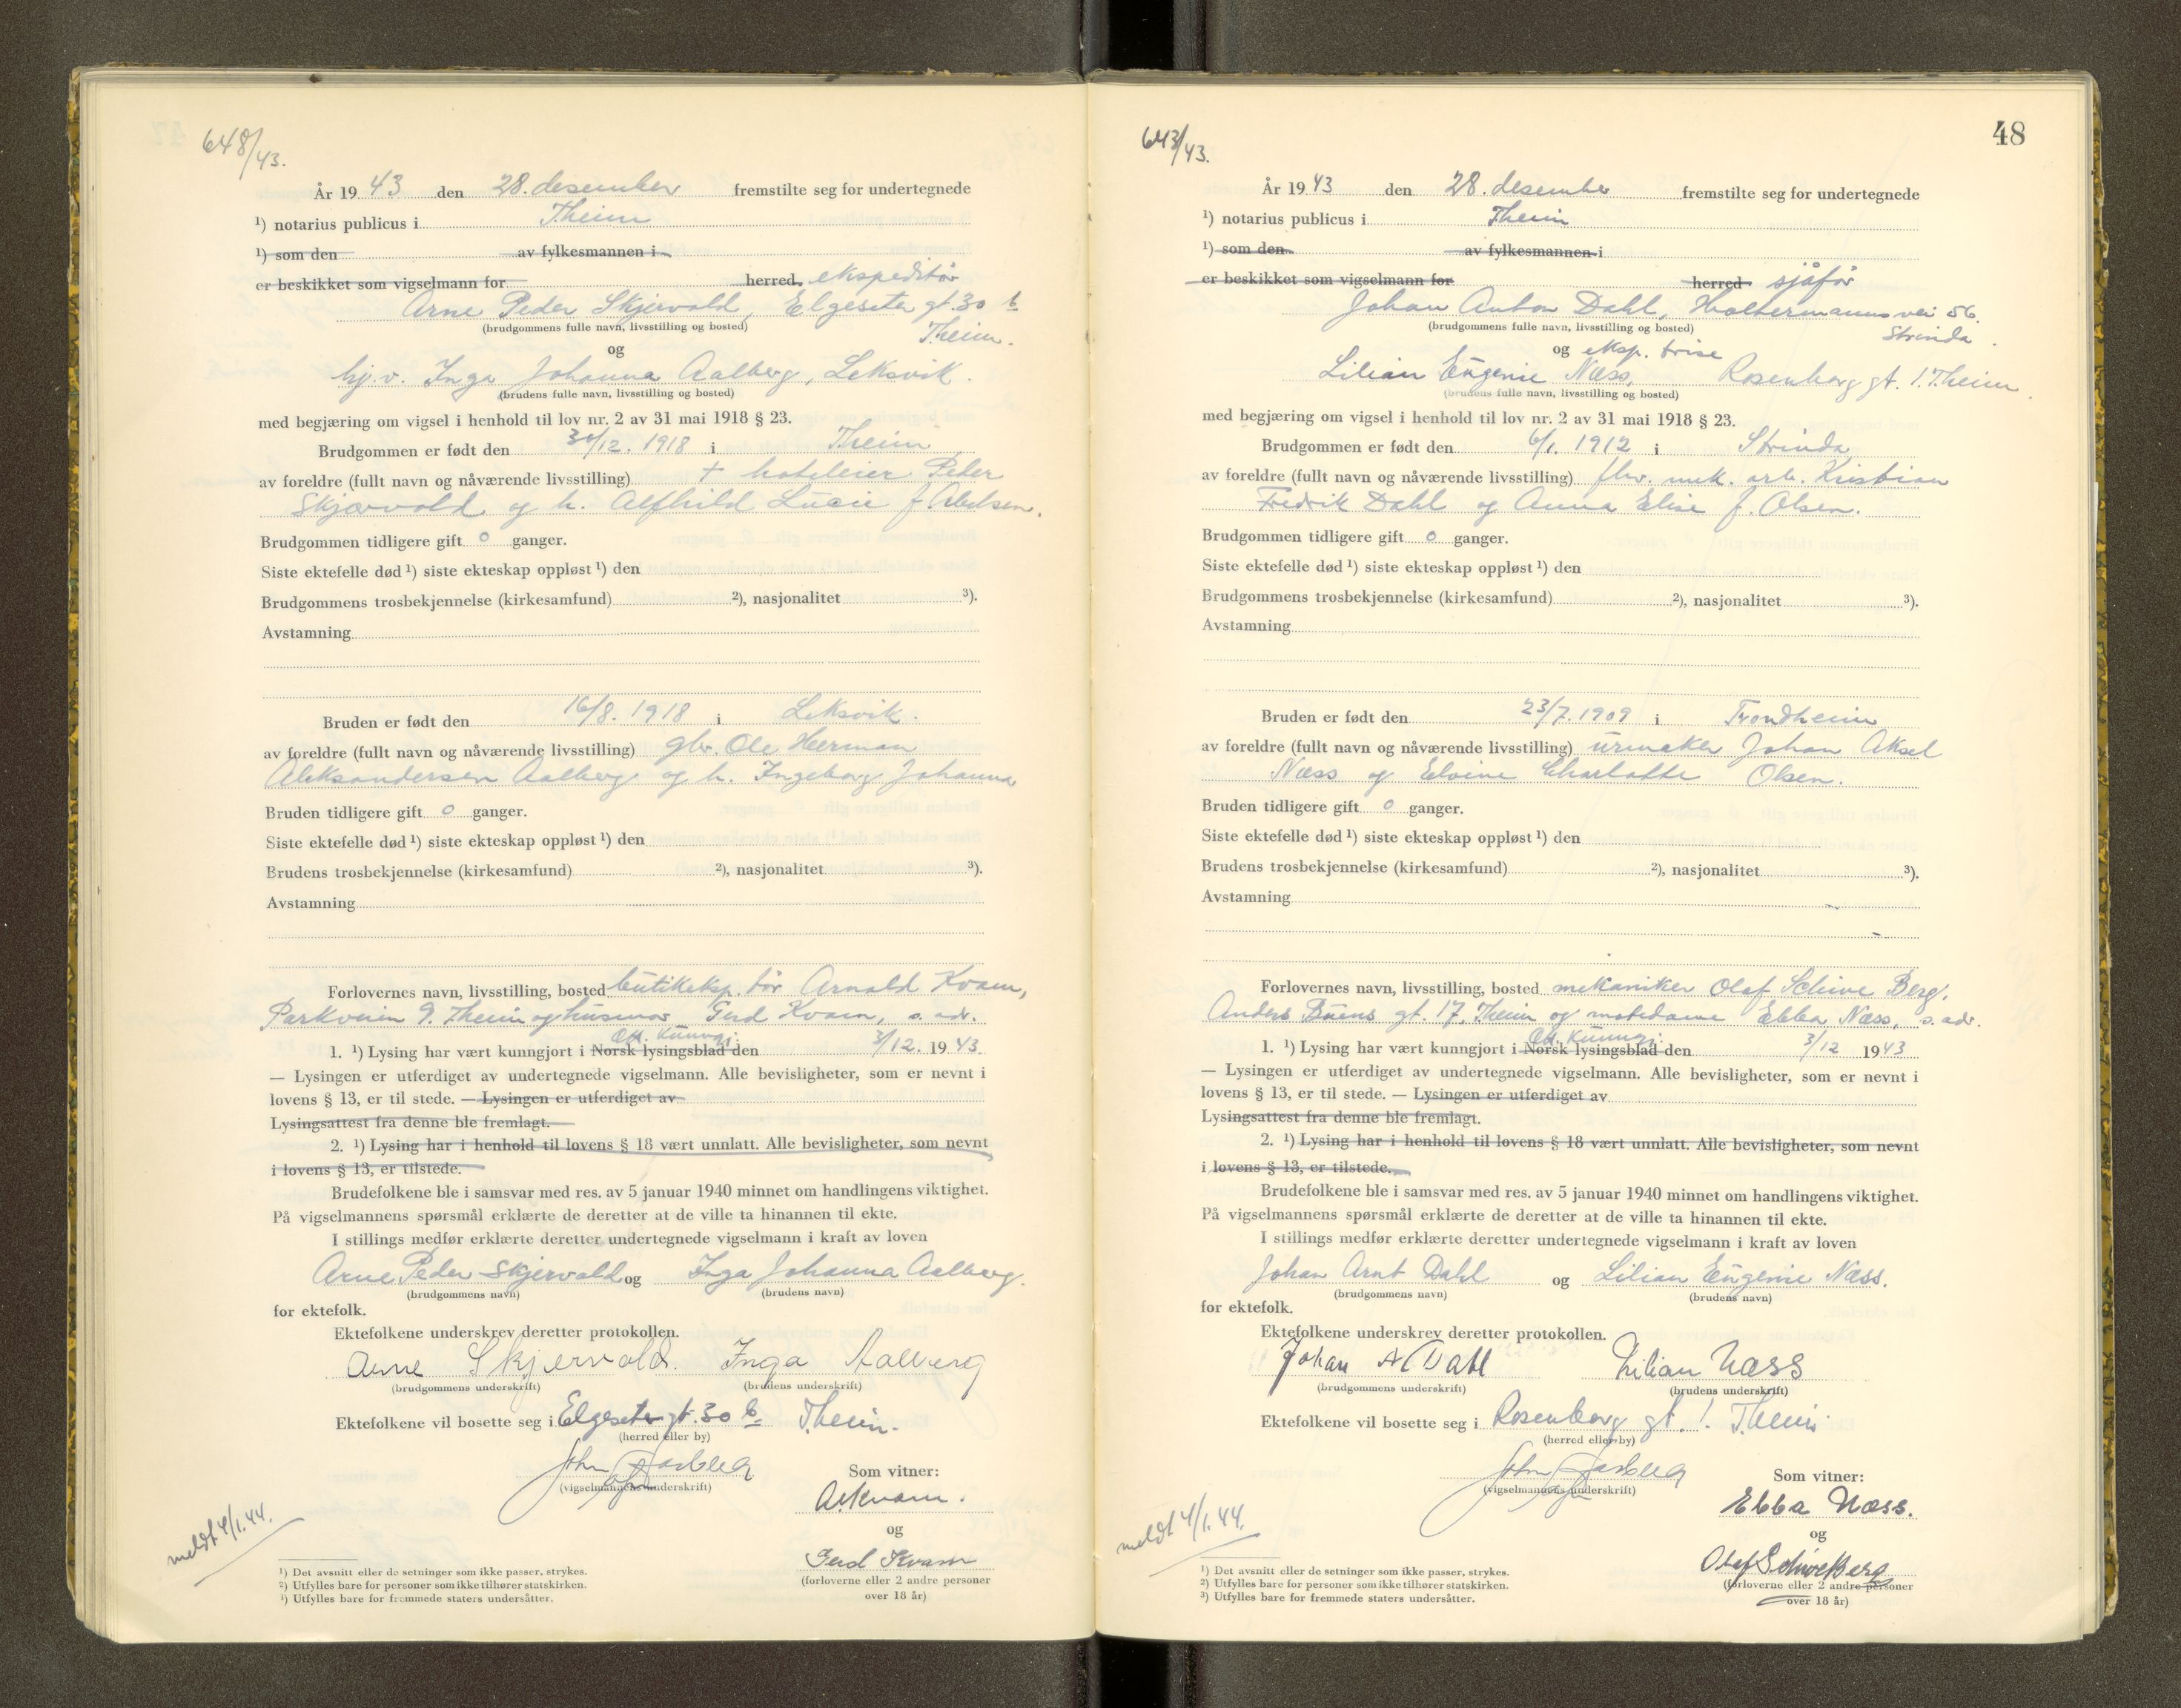 648/43.
År 1943 den 28. desember fremstilte seg for undertegnede
¹) notarius publicus i T.heim
¹) som den av fylkesmannen i
er beskikket som vigselmann for herred. ekspeditør
Arne Peder Skjervold, Elgeseter gt. 30 b
(brudgommens fulle navn, livsstilling og bosted)
T.heim.
og
hj.v. Inga Johanna Aalberg, Leksvik.
(brudens fulle navn, livsstilling og bosted)
med begjæring om vigsel i henhold til lov nr. 2 av 31 mai 1918 § 23.
Brudgommen er født den 30/12. 1918 i T.heim
av foreldre (fullt navn og nåværende livsstilling) + hoteleier Peder
Skjærvold og h. Alfhild Lucie f.
Brudgommen tidligere gift 0 ganger.
Siste ektefelle død ¹) siste ekteskap oppløst ¹) den
Brudgommens trosbekjennelse (kirkesamfund) ²), nasjonalitet ³).
Avstamning
Bruden er født den 16/8. 1918 i Leksvik.
av foreldre (fullt navn og nåværende livsstilling) gbr. Ole Herman
Aleksandersen Aalberg og h. Ingeborg Johanna
Bruden tidligere gift 0 ganger.
Siste ektefelle død ¹) siste ekteskap oppløst ¹) den
Brudens trosbekjennelse (kirkesamfund) ²), nasjonalitet ³).
Avstamning
Forlovernes navn, livsstilling, bosted butikeksp. tør Arnold Kvam,
Parkveien 9. T.heim og husmor Gerd Kvam, s. adr.
Off. kunngj.
1. ¹) Lysing har vært kunngjort i Norsk lysingsblad den 3/12. 1943
— Lysingen er utferdiget av undertegnede vigselmann. Alle bevisligheter, som er nevnt i
lovens § 13, er til stede. — Lysingen er utferdiget av
Lysingsattest fra denne ble fremlagt.
2. ¹) Lysing har i henhold til lovens § 18 vært unnlatt. Alle bevisligheter, som nevnt
i lovens § 13, er tilstede.
Brudefolkene ble i samsvar med res. av 5 januar 1940 minnet om handlingens viktighet.
På vigselmannens spørsmål erklærte de deretter at de ville ta hinannen til ekte.
I stillings medfør erklærte deretter undertegnede vigselmann i kraft av loven
Arne Peder Skjervold og Inga Johanna Aalberg.
(brudgommens navn) (brudens navn)
for ektefolk.
Ektefolkene underskrev deretter protokollen.
Arne Skjervold. Inga Aalberg
(brudgommens underskrift) (brudens underskrift)
Ektefolkene vil bosette seg i Elgeseter gt. 30 b T.heim.
(herred eller by)
John
(vigselmannens underskrift)
Som vitner:
A. Kvam.
og
Gerd Kvam
(forloverne eller 2 andre personer
over 18 år)
meldt 4/1.44.
¹) Det avsnitt eller de setninger som ikke passer, strykes.
²) Utfylles bare for personer som ikke tilhører statskirken.
³) Utfylles bare for fremmede staters undersåtter.
48
643/43.
År 1943 den 28. desember fremstilte seg for undertegnede
¹) notarius publicus i T.heim
¹) som den av fylkesmannen i
er beskikket som vigselmann for herred sjåfør
Johan Anton Dahl, Haltermanns vei 56.
(brudgommens fulle navn, livsstilling og bosted)
Strinda.
og eksp. trise
Lilian Eugenie Næss, Rosenborg gt. 1. T.heim.
(brudens fulle navn, livsstilling og bosted)
med begjæring om vigsel i henhold til lov nr. 2 av 31 mai 1918 § 23.
Brudgommen er født den 6/1. 1912 i Strinda
av foreldre (fullt navn og nåværende livsstilling) fhv. mek. arb. Kristian
Fredrik Dahl og Anna Elise f. Olsen.
Brudgommen tidligere gift 0 ganger.
Siste ektefelle død ¹) siste ekteskap oppløst ¹) den
Brudgommens trosbekjennelse (kirkesamfund) ²), nasjonalitet ³).
Avstamning
Bruden er født den 23/7. 1909 i Trondheim
av foreldre (fullt navn og nåværende livsstilling) urmaker Johan Aksel
Næss og Elvine Charlotte Olsen.
Bruden tidligere gift 0 ganger.
Siste ektefelle død ¹) siste ekteskap oppløst ¹) den
Brudens trosbekjennelse (kirkesamfund) ²), nasjonalitet ³).
Avstamning
Forlovernes navn, livsstilling, bosted mekaniker Olaf Schive Berg,
Anders Buens gt. 17. T.heim og motedame Ebba Næss, s. adr.
Off. kunngj.
1. ¹) Lysing har vært kunngjort i Norsk lysingsblad den 3/12 1943
— Lysingen er utferdiget av undertegnede vigselmann. Alle bevisligheter, som er nevnt i
lovens § 13, er til stede. — Lysingen er utferdiget av
Lysingsattest fra denne ble fremlagt.
2. ¹) Lysing har i henhold til lovens § 18 vært unnlatt. Alle bevisligheter, som nevnt
i lovens § 13, er tilstede.
Brudefolkene ble i samsvar med res. av 5 januar 1940 minnet om handlingens viktighet.
På vigselmannens spørsmål erklærte de deretter at de ville ta hinannen til ekte.
I stillings medfør erklærte deretter undertegnede vigselmann i kraft av loven
Johan Arnt Dahl og Lilian Eugenie Næss.
(brudgommens navn) (brudens navn)
for ektefolk.
Ektefolkene underskrev deretter protokollen.
Johan A Dahl Lilian Næss
(brudgommens underskrift) (brudens underskrift)
Ektefolkene vil bosette seg i Rosenborg gt. 1. T.heim.
(herred eller by)
John
(vigselmannens underskrift)
Som vitner:
Ebba Næss.
og
Olaf Schive Berg
(forloverne eller 2 andre personer
over 18 år)
meldt 4/1.44.
¹) Det avsnitt eller de setninger som ikke passer, strykes.
²) Utfylles bare for personer som ikke tilhører statskirken.
³) Utfylles bare for fremmede staters undersåtter.